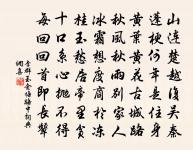 山連楚越復吳秦
蓬梗何年是住身
黃葉黃花古城路
秋風秋雨別家人
冰霜想度商於凍
桂玉愁居帝里貧
十口繫心拋不得
每回回首即長顰
李群玉金塘路中詞典
網書